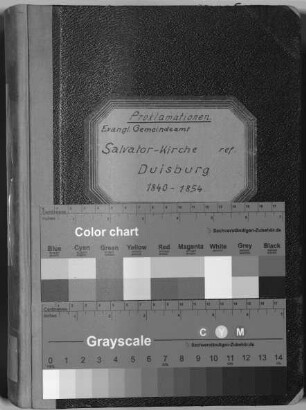 Proklamationen
Evangl. Gemeindeamt
Salvator-Kirche ref.
Duisburg
1840-1854.
Color chart
Sachverständigen-Zubehör.de
Blue Cyan Green Yellow Red Magenta White Grey Black
Grayscale
C Y M
Sachverständigen-Zubehör.de
0 1 2 3 4 5 6 7 8 9 10 11 12 13 14